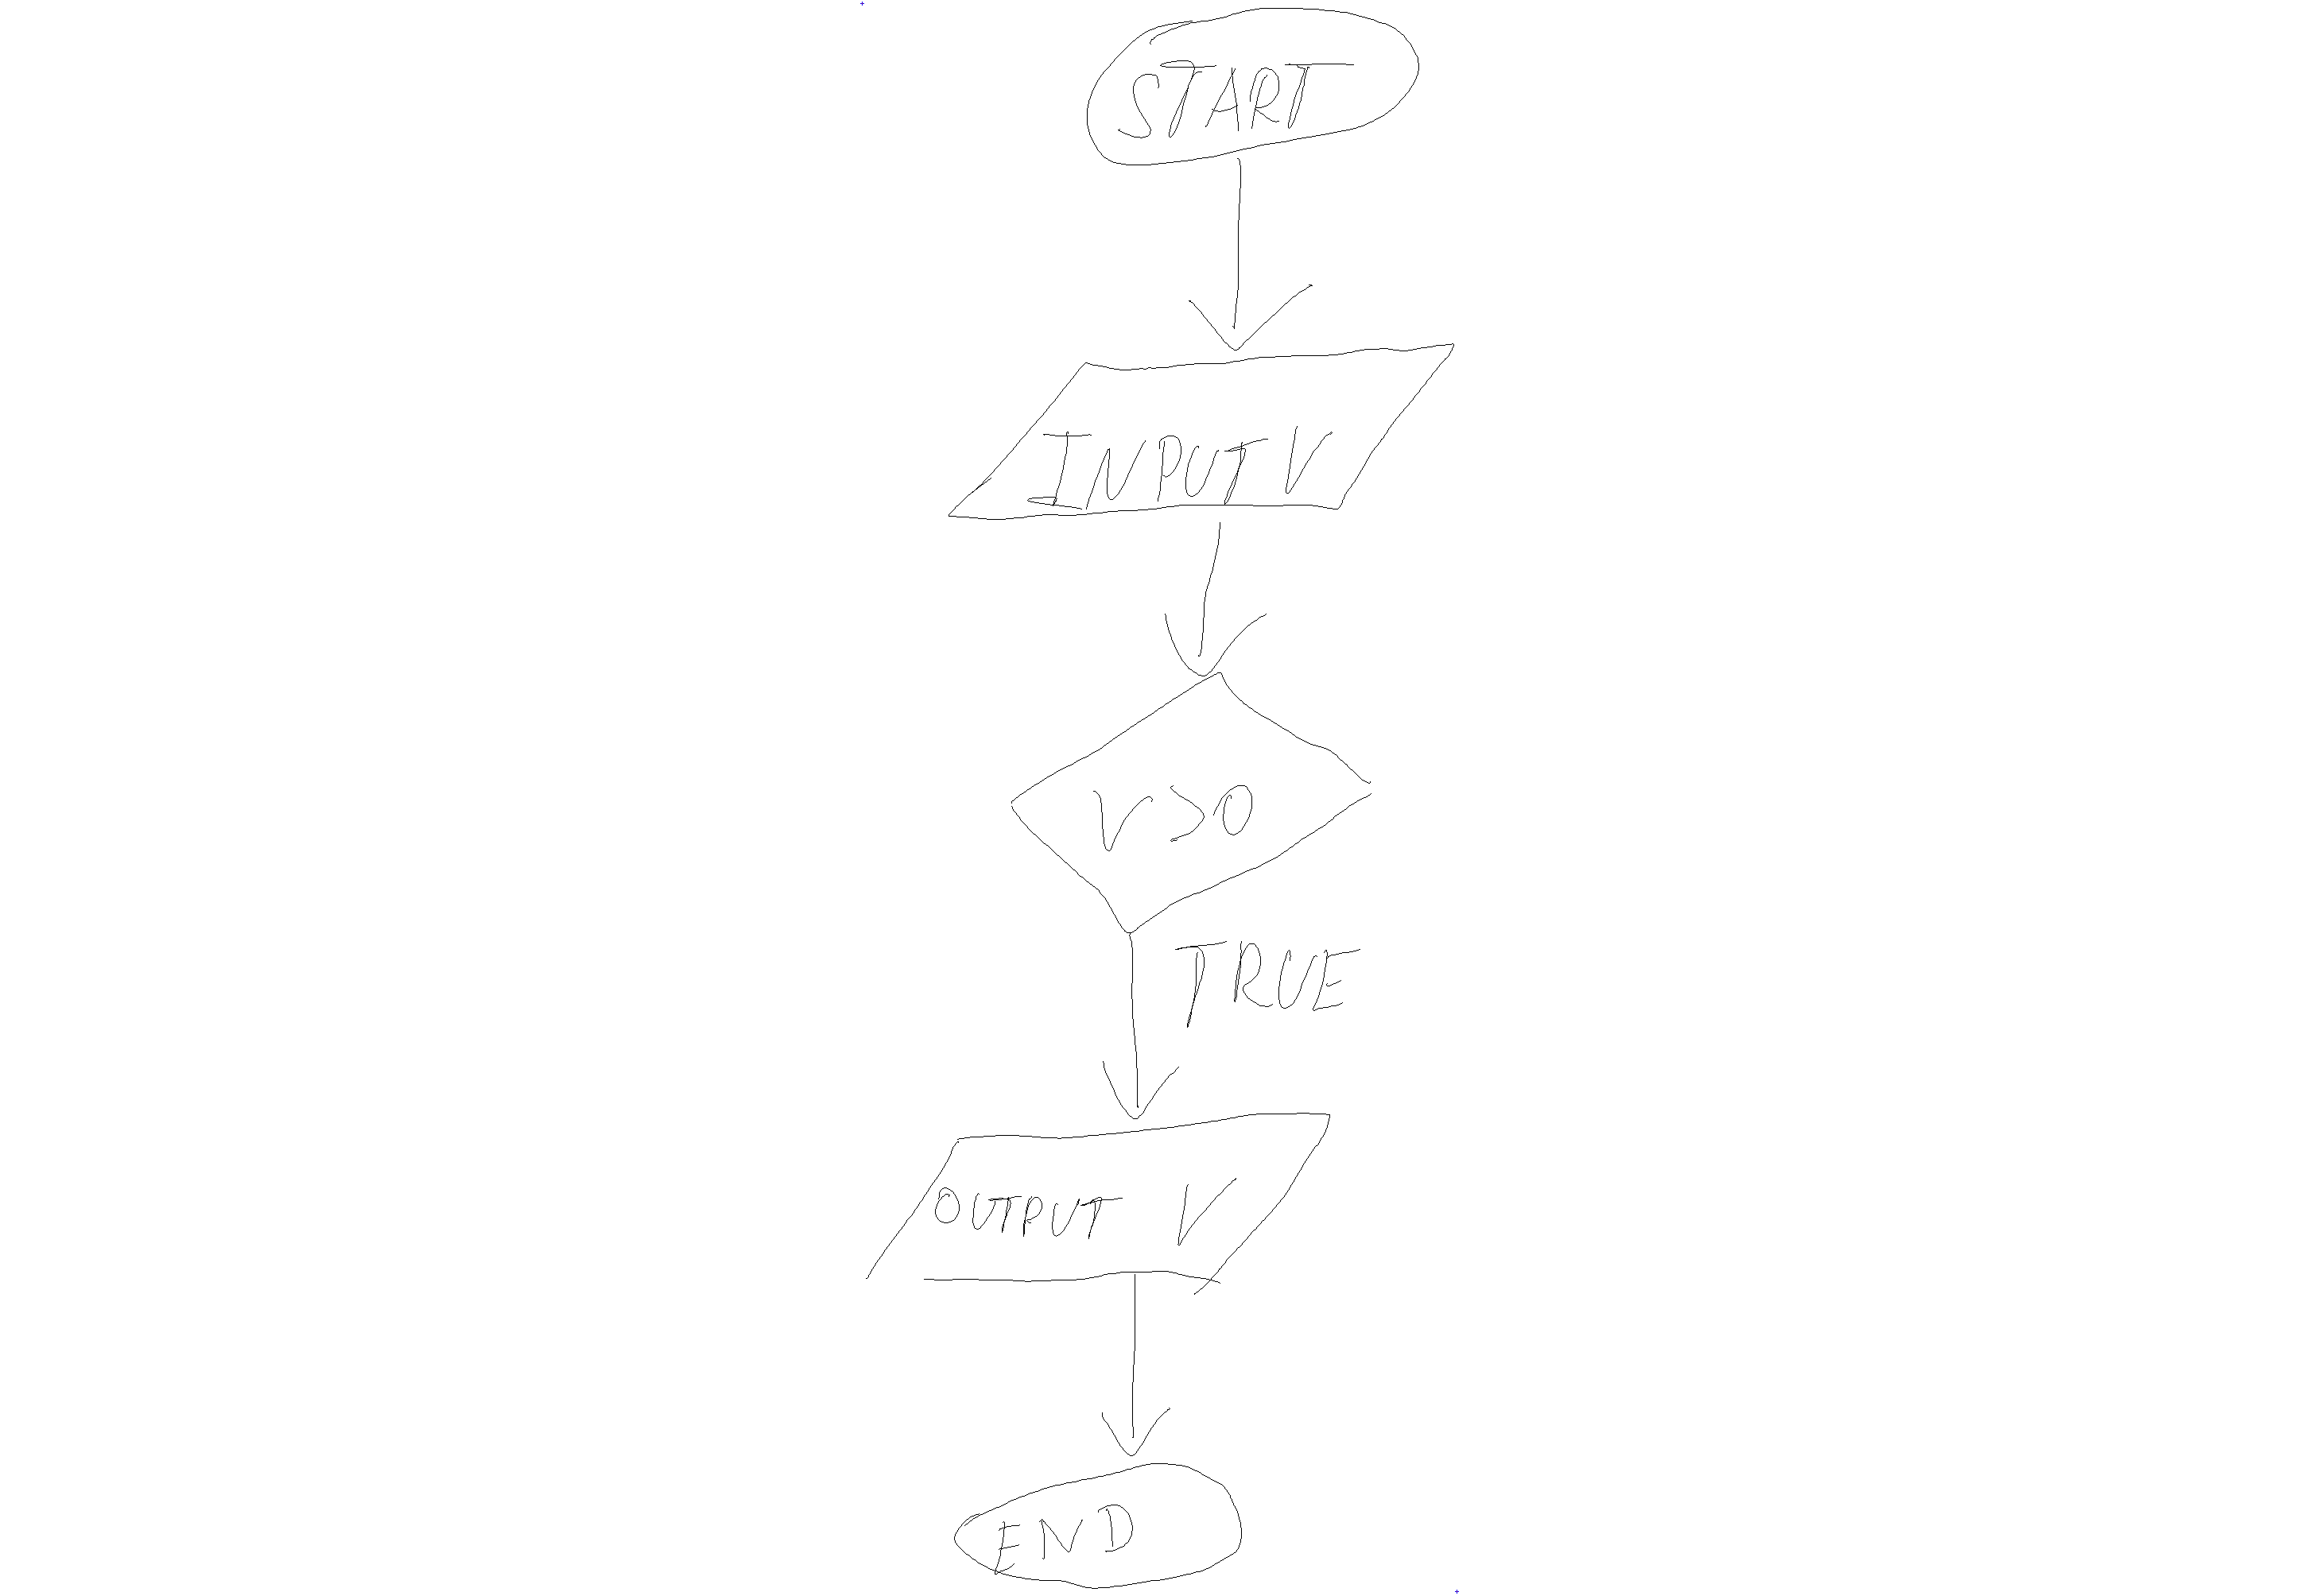 START
INPUT V
V > 0
TRUE
OUTPUT V
END